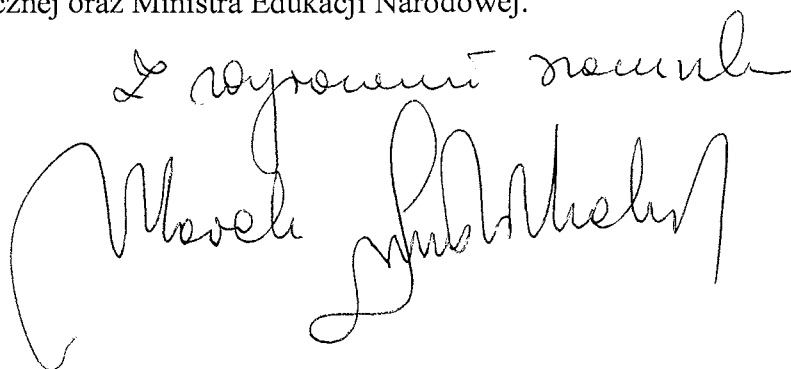 cznej oraz Ministra Edukacji Narodowej.
Z wyrazami szacunku
Marek